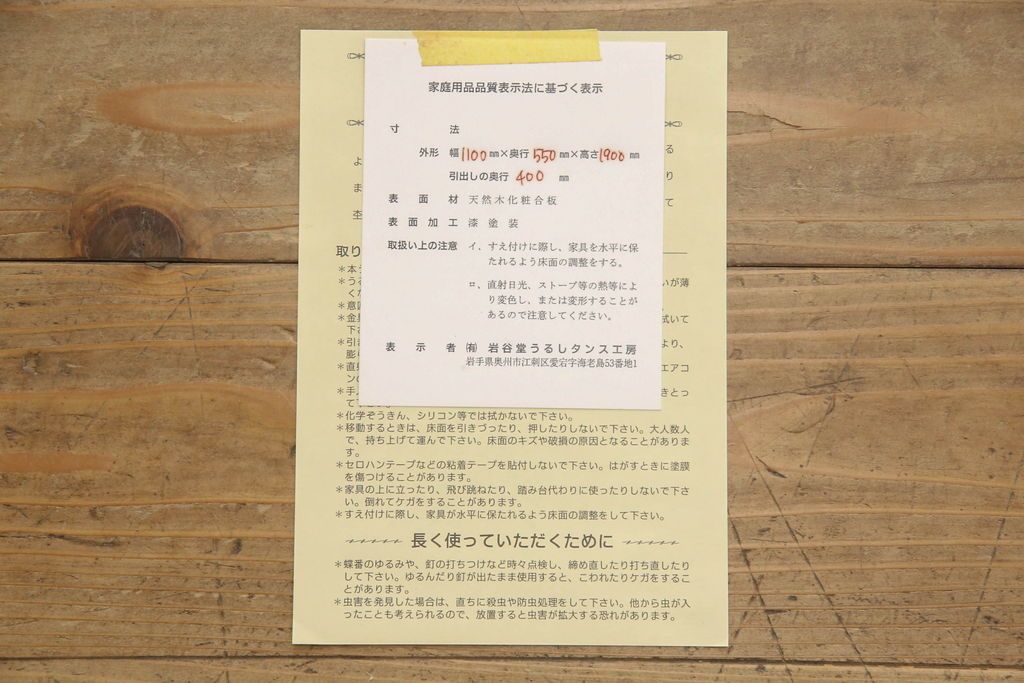 家庭用品品質表示法に基づく表示
寸 法
外形 幅1100㎜×奥行550㎜×高さ1900㎜
引出しの奥行 400 ㎜
表面材 天然木化粧合板
表面加工 漆塗装
取扱い上の注意 イ、すえ付けに際し、家具を水平に保
たれるよう床面の調整をする。
ロ、直射日光、ストーブ等の熱等によ
り変色し、または変形することが
あるので注意してください。
表示者 ㈲ 岩谷堂うるしタンス工房
岩手県奥州市江刺区愛宕字海老島53番地1
る
よ
り
ま
て
本
取り
＊本
＊うる
いが薄
く
＊意
＊金具
拭いて
下
＊引き
より、
膨
＊直射
エアコ
ンの
＊手入
きとっ
て
＊化学ぞうきん、シリコン等では拭かないで下さい。
＊移動するときは、床面を引きづったり、押したりしないで下さい。大人数人
で、持ち上げて運んで下さい。床面のキズや破損の原因となることがありま
す。
＊セロハンテープなどの粘着テープを貼付しないで下さい。はがすときに塗膜
を傷つけることがあります。
＊家具の上に立ったり、飛び跳ねたり、踏み台代わりに使ったりしないで下さ
い。倒れてケガをすることがあります。
＊すえ付けに際し、家具が水平に保たれるよう床面の調整をして下さい。
長く使っていただくために
＊蝶番のゆるみや、釘の打ちつけなど時々点検し、締め直したり打ち直したり
して下さい。ゆるんだり釘が出たまま使用すると、こわれたりケガをするこ
とがあります。
＊虫害を発見した場合は、直ちに殺虫や防虫処理をして下さい。他から虫が入
ったことも考えられるので、放置すると虫害が拡大する恐れがあります。